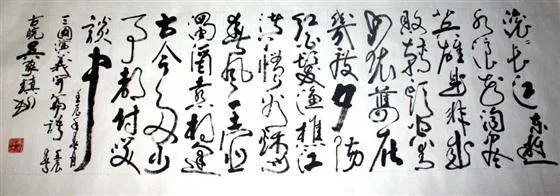 滚滚长江东逝
水浪花淘尽
英雄是非成
败转头空青
山依旧在
几度夕阳
红白髮渔樵江
渚惯看秋月
春风一壶浊
酒喜相逢
古今多少
事都付笑
谈中
三國演义开篇词